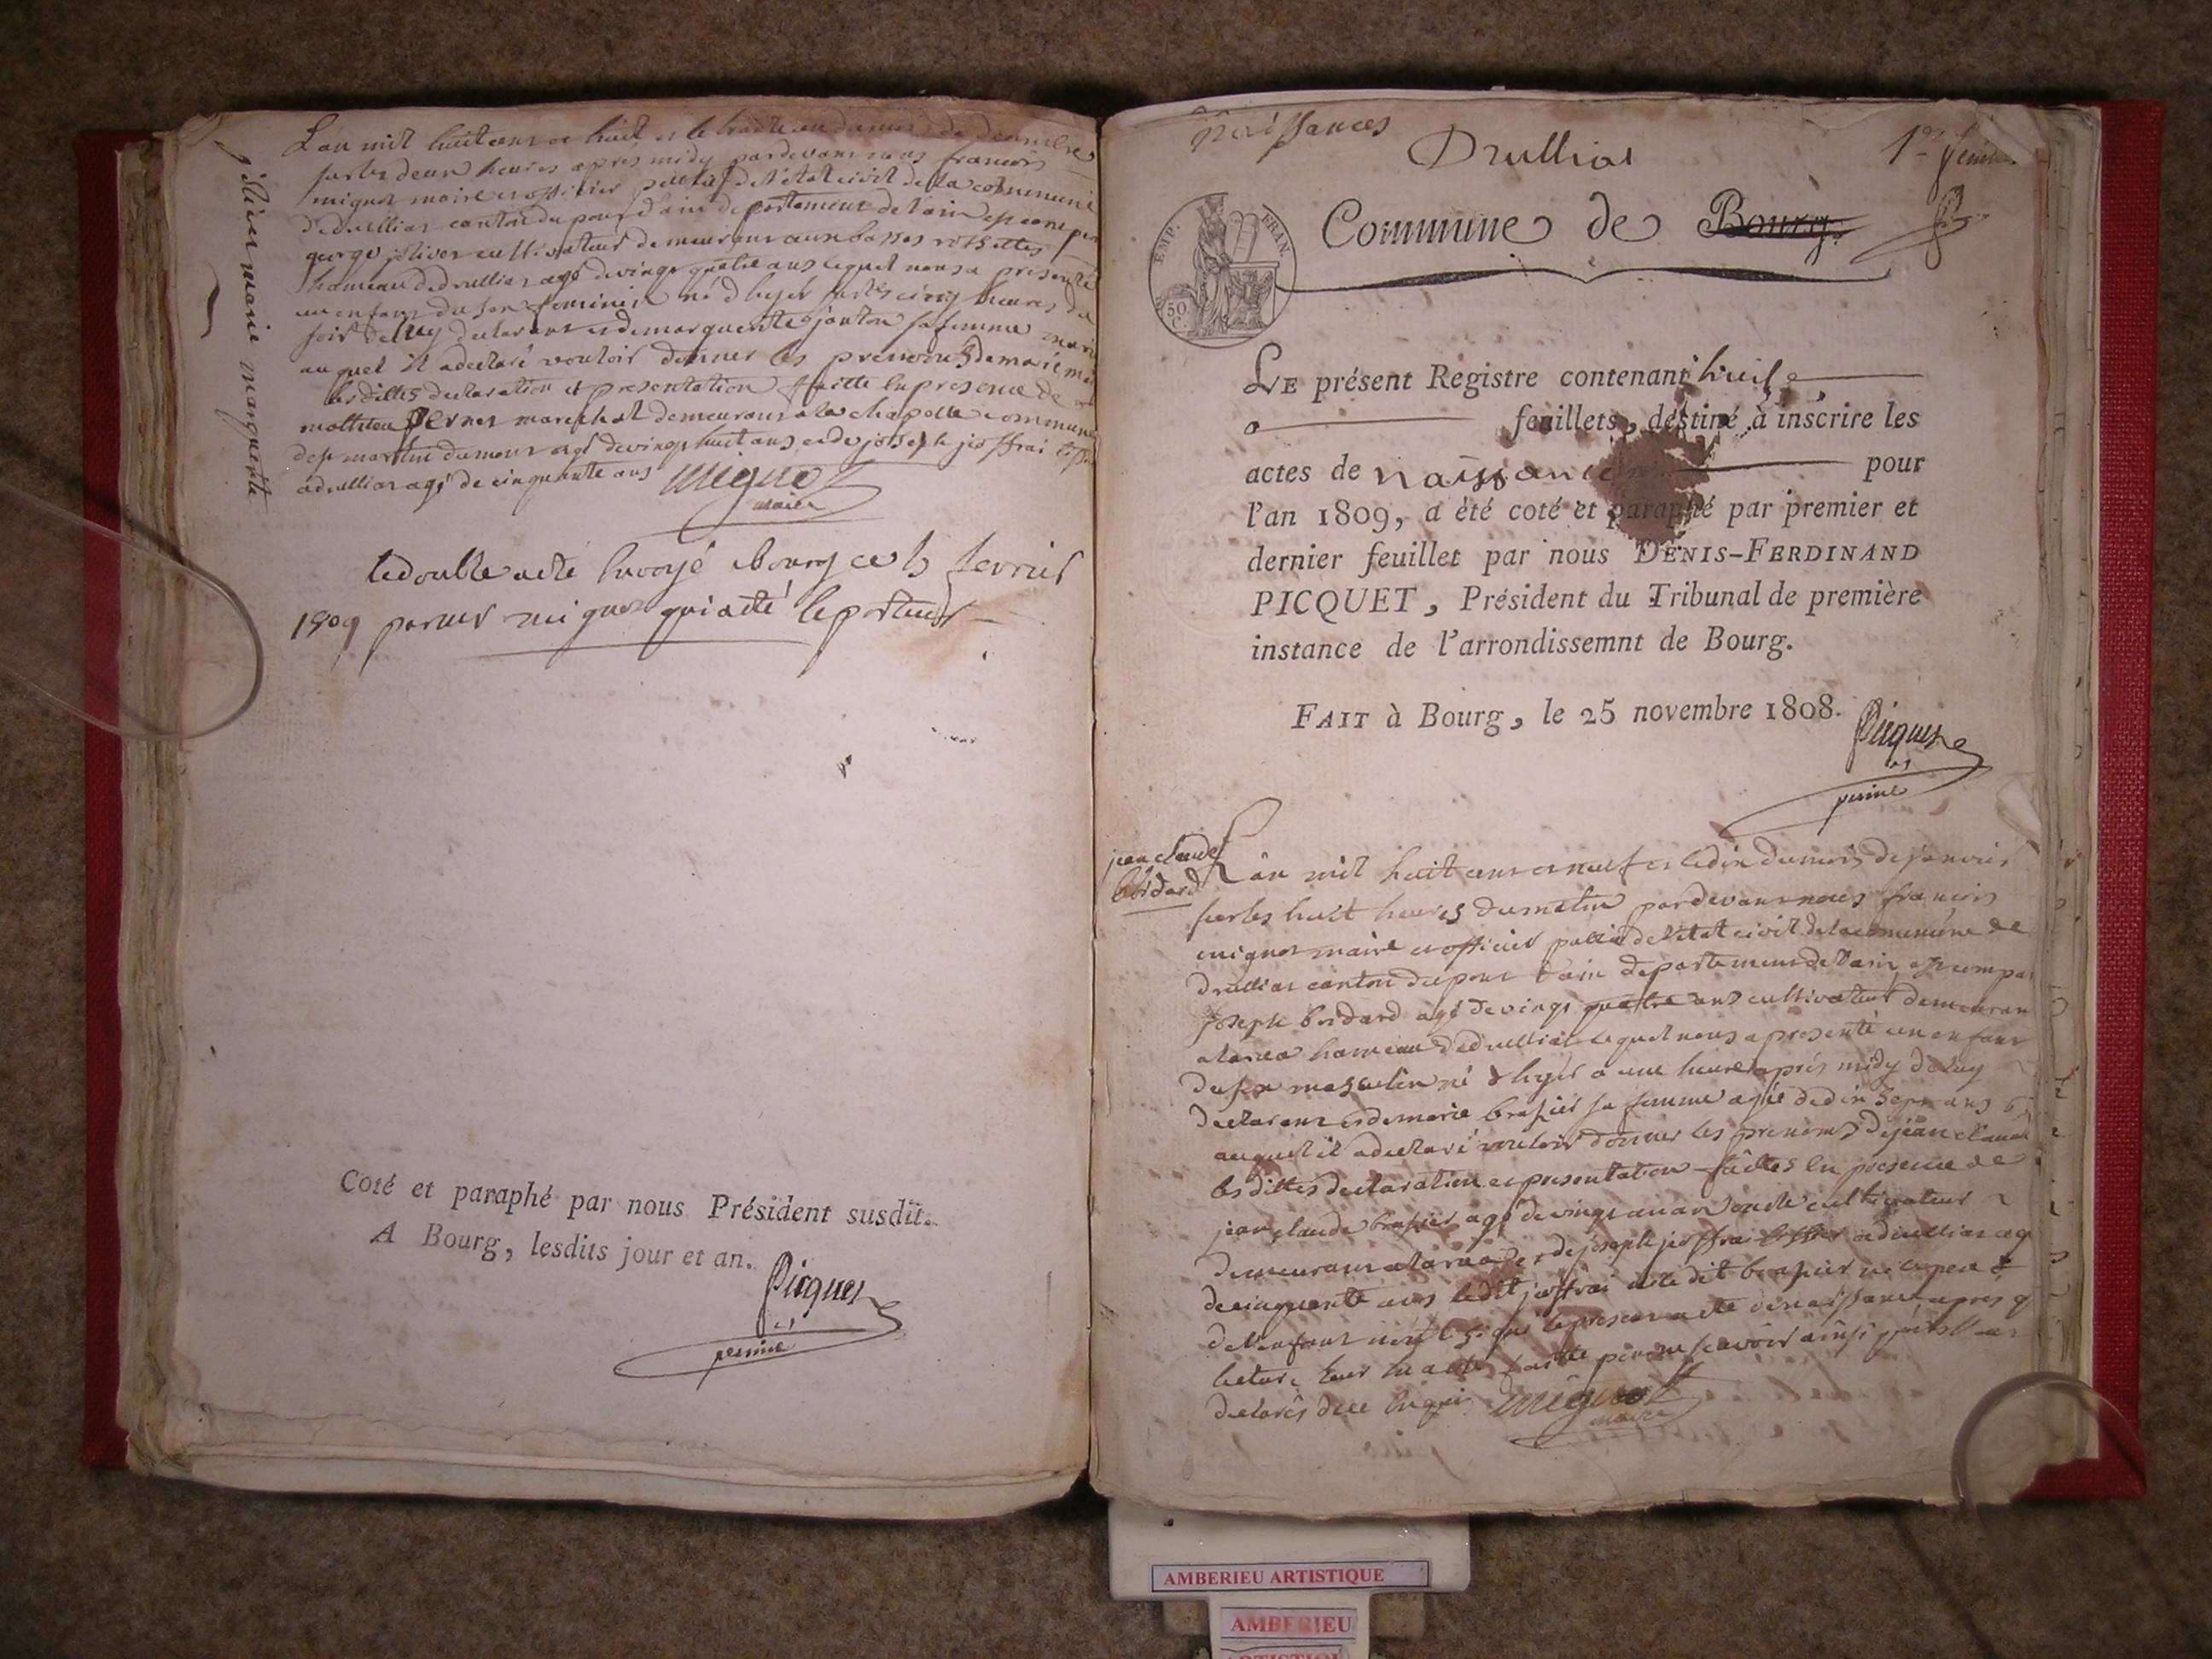 L'an mil huit cent et huit et le trente du mois de decembre
sur les deux heures après midy pardevant nous francois
mignot maire et officier public de l'état civil de la commune
de druillias canton du pont d'ain departement de l'ain est comparu
george jolivet cultivateur demeurant aux basses
hameau de druillias agé de vingt quatre ans lequel nous a présenté
un enfant du sexe feminin né d'hyer sur les cinq heures du
soir de luy declarant et de marguerite janton sa femme
auquel il a declaré vouloir donner les prenoms de marie
les dittes declaration et presentation faitte en presence de
mathieu perner marechal demeurant a la chapelle commune
de st martin du mont agé de vingt huit ans et de joseph joffrai
a druillias agé de cinquante ans mignot
maire
jolivet marie marguerite
le double a été envoyé a bourg ce 5 fevrier
1809 par mr mignot qui a été le porteur
Coté et paraphé par nous Président susdit.
A Bourg, lesdits jour et an.
Picquet
naissances
Druillias
1er feuillet
Commune de Bourg
EMP. FRAN.
50 C.
LE présent Registre contenant huit
feuillets, destiné à inscrire les
actes de naissances pour
l'an 1809, a été coté et paraphé par premier et
dernier feuillet par nous DENIS-FERDINAND
PICQUET, Président du Tribunal de première
instance de l'arrondissemnt de Bourg.
FAIT à Bourg, le 25 novembre 1808.
Picquet
jean claude
bridard
L'an mil huit cent et neuf et le dix du mois de janvier
sur les huit heures du matin pardevant nous francois
mignot maire et officier public de l'etat civil de la commune de
druillias canton du pont d'ain departement de l'ain est compar
joseph bridard agé de vingt quatre ans cultivateur demeuran
hameau de druillias lequel nous a presenté un enfant
du sexe masculin né d'hyer a une heure après midy de luy
declarant et de marie brasier sa femme agée de dix sept ans
auquel il a declaré vouloir donner les prenoms de jean claude
les dittes declaration et presentation faittes en presence de
jean claude brasier agé de vingt un an oncle cultivateur
demeurant et de joseph joffrai a druillias ag
de cinquante ans ledit joffrai et ledit brasier le pere
de l'enfant le present acte de naissance apres q
lecture leur en a été faitte pour ne scavoir ainsi
declarés de ce enquis mignot
maire
AMBERIEU ARTISTIQUE
AMBERIEU
ARTISTIQUE